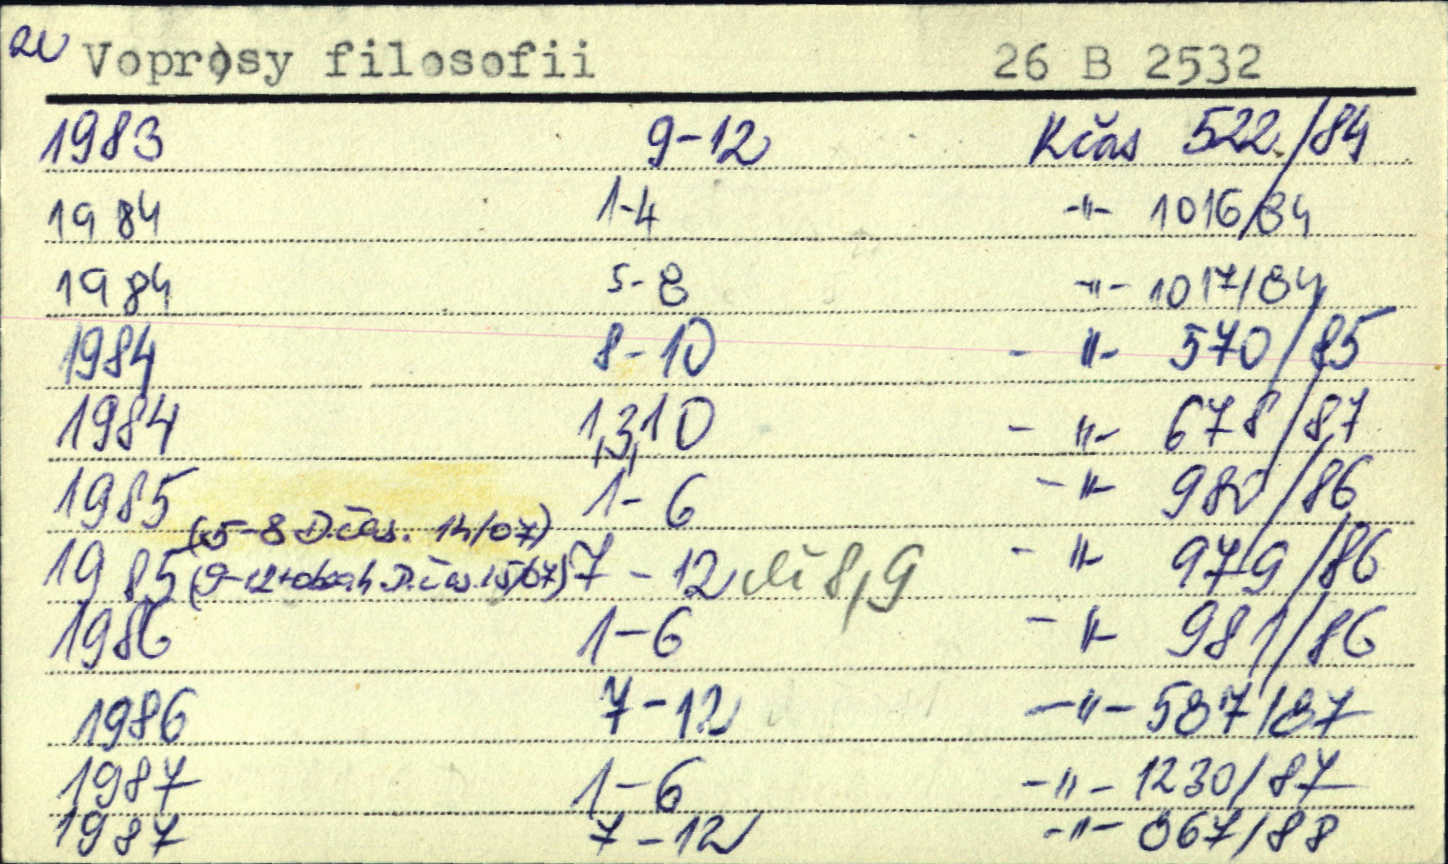 Voprosy filosofii 26 B 2532
1983 9-12 Kčas 522/84
1984 1-4 -"- 1016/84
1984 5-8 -"- 1017/84
1984 8-10 -"- 570/85
1984 1,3,10 -"- 678/87
1985 1-6 -"- 980/86
(5-8 D.čas. 14/07)
1985 (9-12+obsah D.čas.15/07) 7-12 8,9 -"- 979/86
1986 1-6 -"- 981/86
1986 7-12 -"- 587/87
1987 1-6 -"- 1230/87
1987 7-12 -"- 867/88